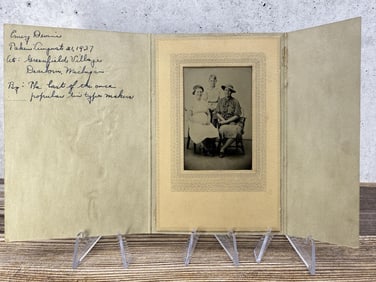 Taken August 21, 1937
At: Greenfield Village
Dearborn, Michigan
By: The last of the once
popular tin type makers